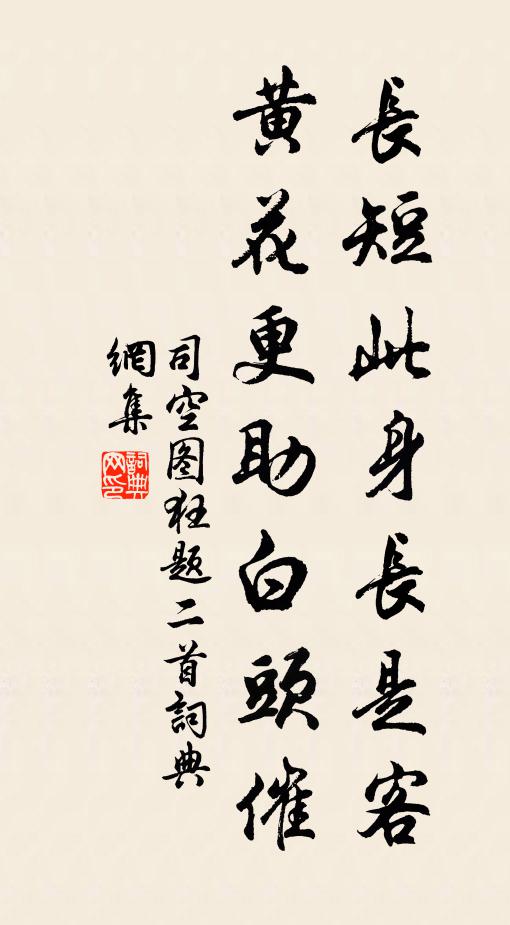 長短此身長是客
黃花更助白頭催
司空图狂题二首詞典
網集
詞典
网印